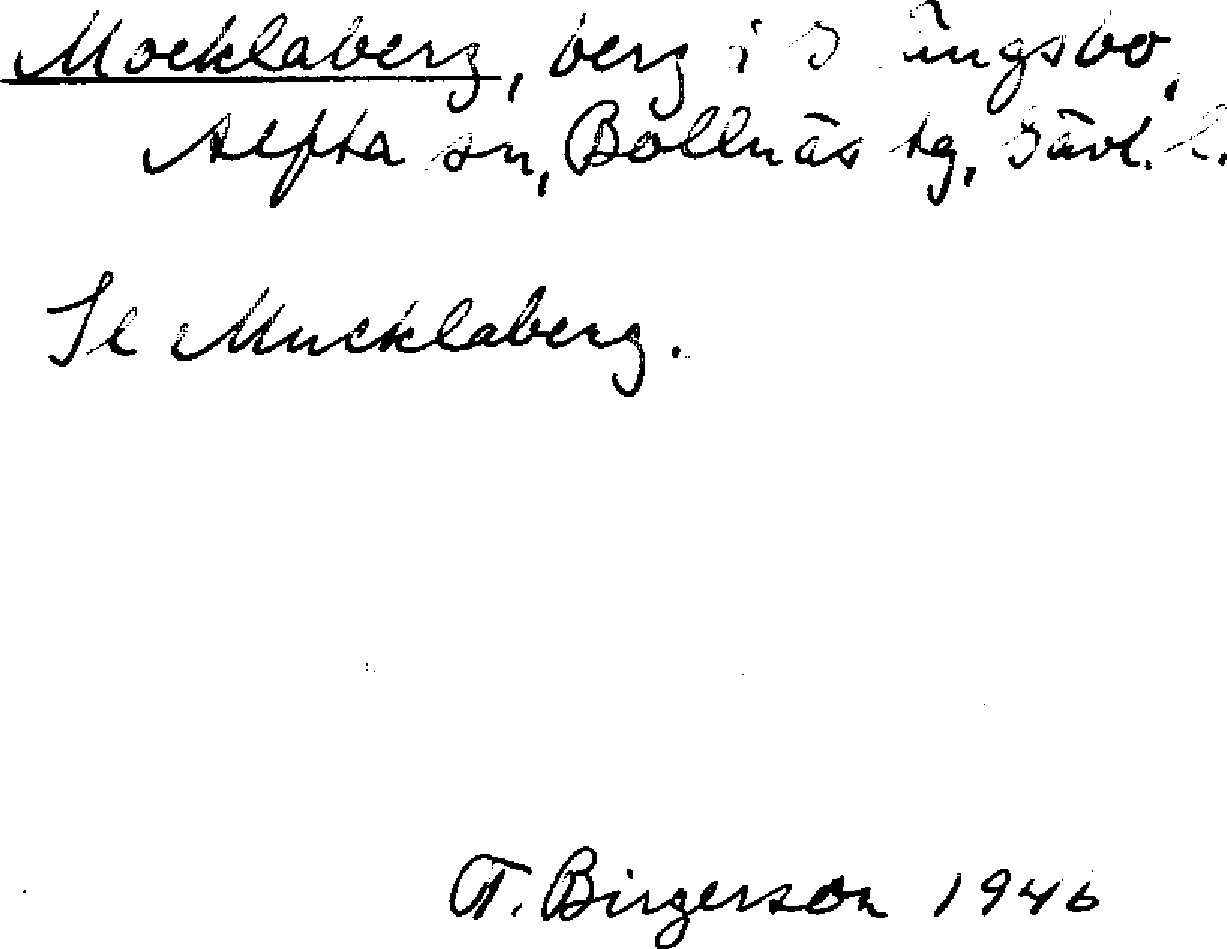 Mocklaberg, berg i
Alfta sn, Bollnäs tg, Gävl. l.
Se Mucklaberg.
T. Birgerson 1946